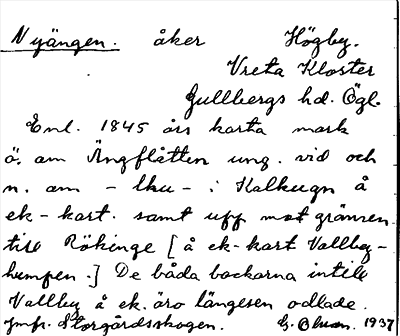 Nyängen. åker Högby.
Vreta Kloster
Gullbergs hd. Ögl.
Enl. 1845 års karta mark
ö. om Ängflätten ung. vid och
n. om - lku - i Kalkugn å
ek-kart. samt upp mot gränsen
till Rökinge [å ek-kart Vallby-
hempen.] De båda backarna intill
Vallby å ek. äro längesen odlade.
Jmfr. Storgårdsskogen. G. Olson. 1937